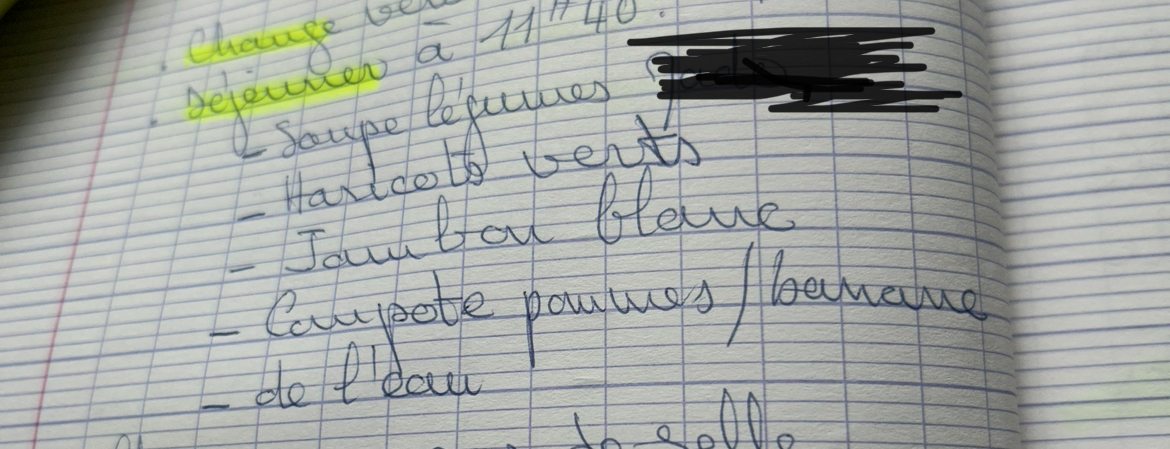 . Change
. Déjeuner à 11H40.
- Soupe légumes
- Haricots verts
- Jambon blanc
- Compote pommes / banane
- de l'eau
de selle